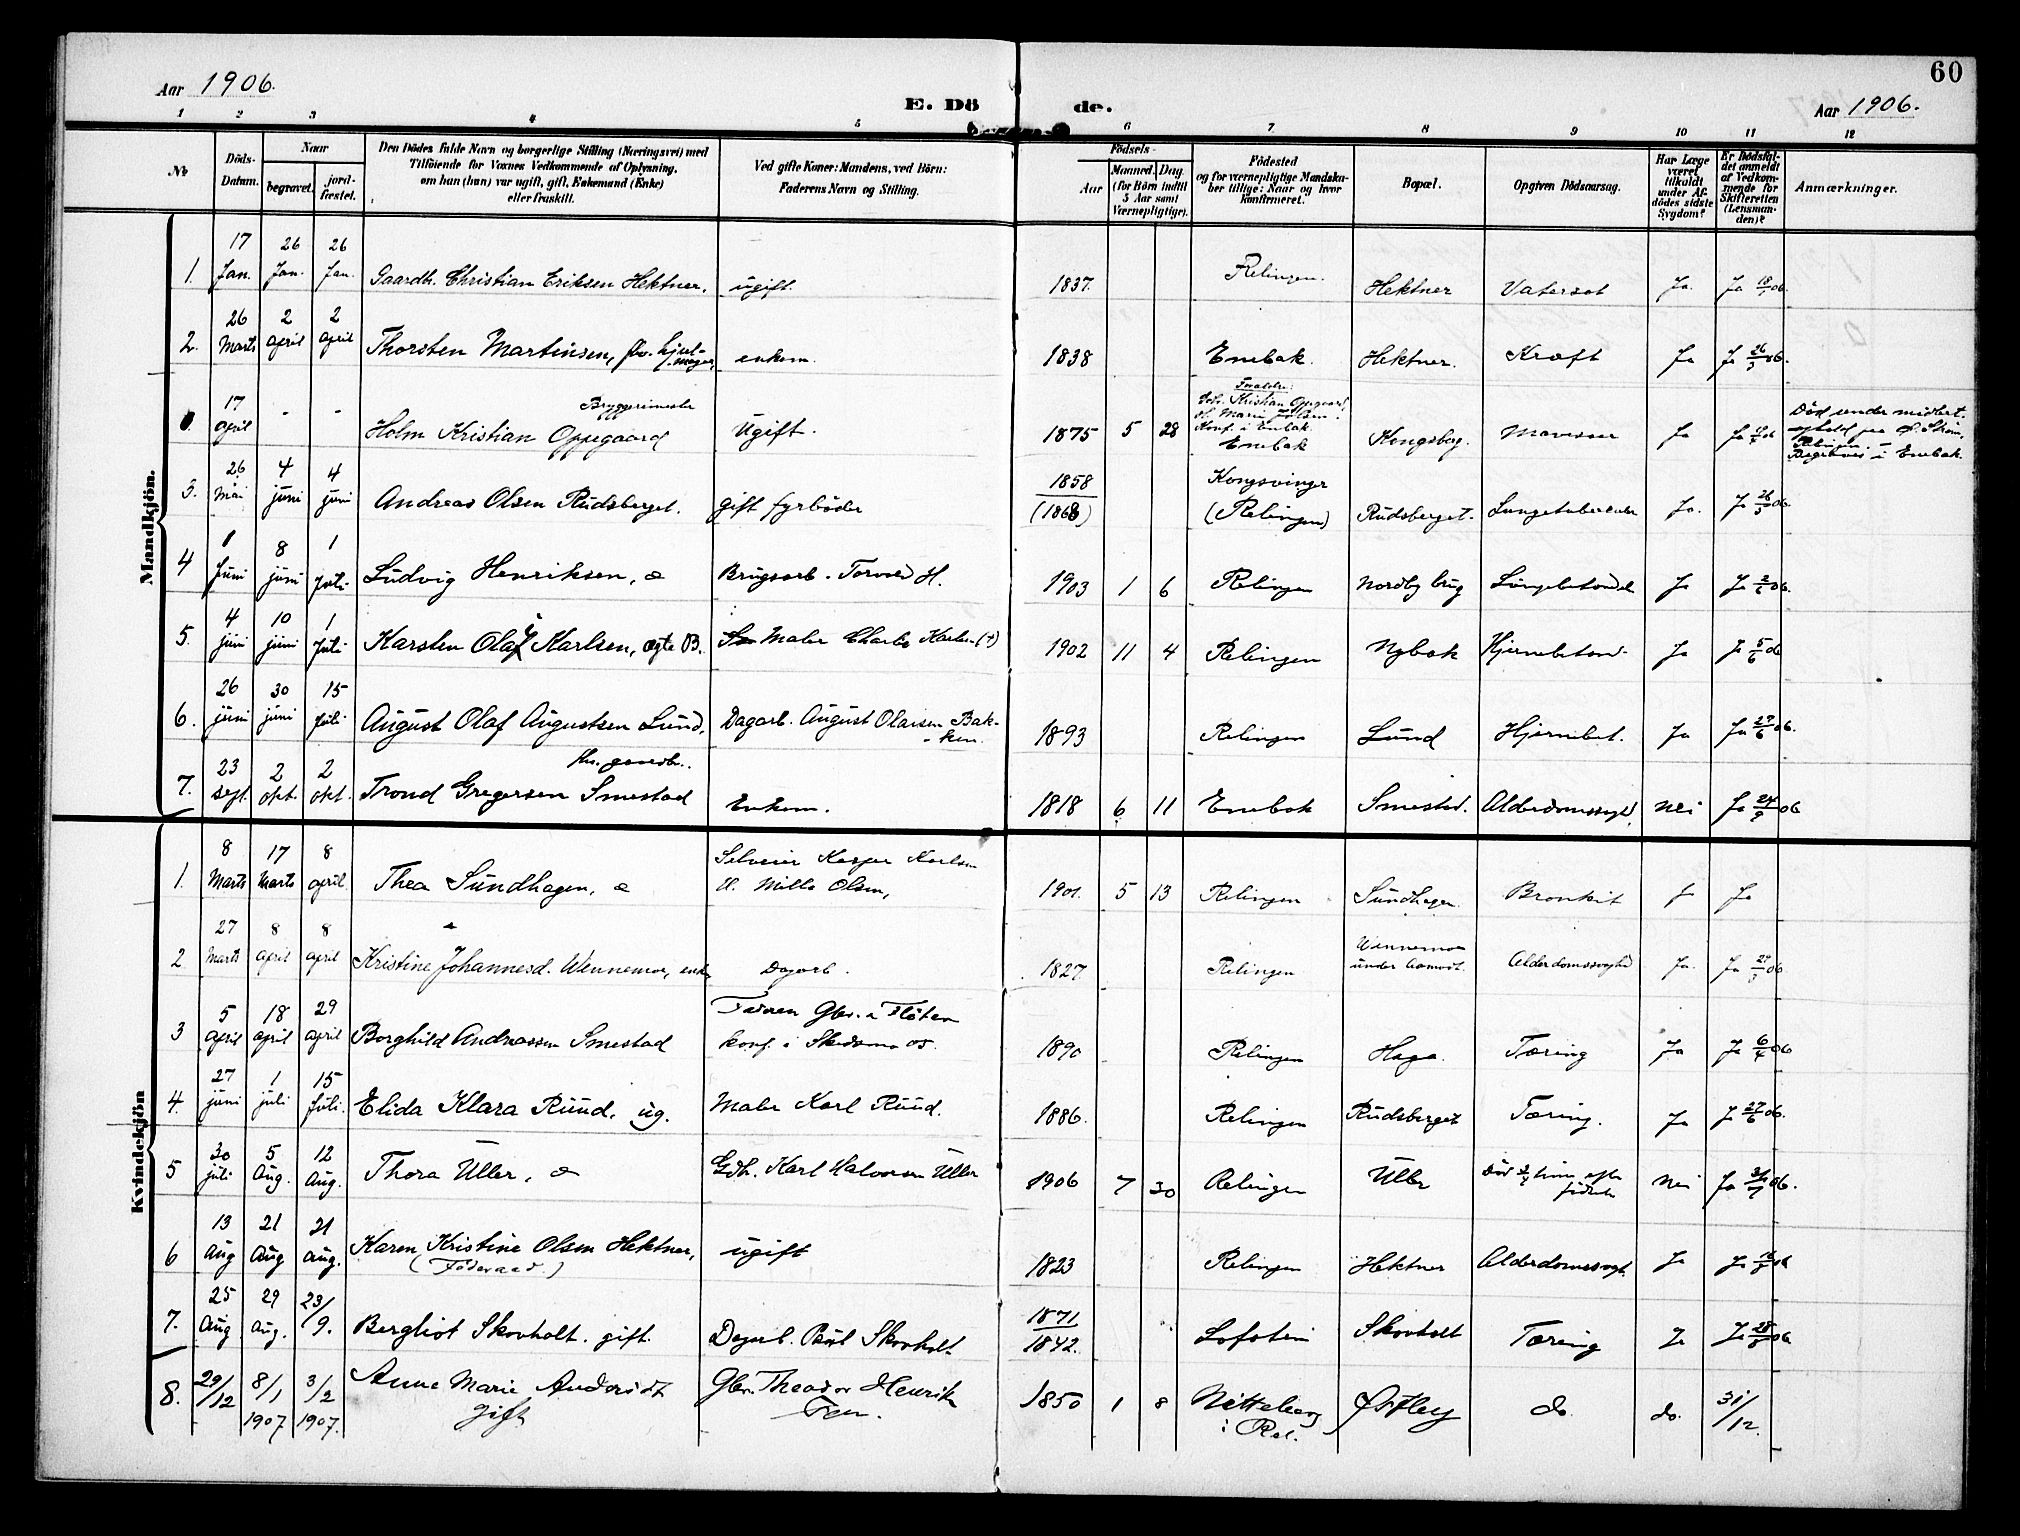 60
Aar 1906.
E. Döde.
Aar 1906.
1 2 3 4 5 6 7 8 9 10 11 12
No
Döds-
Datum.
Naar
begravet.
jord-
fæstet.
Den Dödes fulde Navn og borgerlige Stilling (Næringsvei) med
Tilföiende for Voxnes Vedkommende af Oplysning,
om han (hun) var ugift, gift, Enkemand (Enke)
eller fraskilt.
Ved gifte Koner: Mandens, ved Börn:
Faderens Navn og Stilling.
Födsels-
Aar
Maaned. Dag.
(for Börn indtil
5 Aar samt
Værnepligtige).
Födested
og for værnepligtige Mandska-
ber tillige: Naar og hvor
konfirmeret.
Bopæl.
Opgiven Dödsaarsag.
Har Læge
været
tilkaldt
under Af-
dödes sidste
Sygdom?
Er Dödsfal-
det anmeldt
af Vedkom-
mende for
Skifteretten
(Lensman-
den)?
Anmærkninger.
Mandkjön.
1. 17 Jan. 26 Jan. 26 Jan. Gaardb. Christian Eriksen Hektner, ugift. 1837. Relingen. Hektner Vatersot Ja. Ja 18/1 06.
2. 26 Marts 2 april 2 april Thorsten Martinsen, fhv. hjul-
mager, enkem. 1838 Enebak. Hektner. Kræft Ja Ja 26/3 06.
0 17 april - - Bryggerimester
Holm Kristian Oppegaard Ugift. 1875 5 28
Forældre:
Gdbr. Kristian Oppegaard
Konf. i Enebak.
Enebak Kongsberg. Ja Ja
Död under midlert.
ophold paa
Relingen.
Begraves i Enebak.
3. 26 Mai 4 juni 4 juni Andreas Olsen Rudsberget. gift fyrböder 1858
(1868) Kongsvinger
(Relingen) Rudsberget. Lungetuberculose Ja. Ja 26/5 06.
4 1 Juni 8 juni 1 Juli Ludvig Henriksen, æ Brugsarb. Torvald H. 1903 1 6 Relingen Nordby brug Lungebetændel Ja Ja 2/6 06.
5. 4 juni 10 juni 1 Juli Karsten Olaf Karlsen, ægte B. Maler Charles Karlsen (+) 1902 11 4 Relingen Nybak Hjernebetænd. Ja Ja 5/6 06
6. 26 juni 30 juni 15 Juli August Olaf Augustsen Lund, Dagarb. August Olausen Bak-
ken. 1893 Relingen Lund Hjernebet. Ja Ja 27/6 06.
7. 23 sept. 2 okt. 2 okt. fhv. gaardbr.
Trond Gregersen Smestad Enkem. 1818 6 11 Enebak Smestad. Alderdomssvagh. Nei Ja 24/9 06
Kvindekjön
1. 8 Marts 17 Marts 8 april. Thea Sundhagen, æ Selveier Kasper Karlsen
U. Mille Olsen, 1901. 5 13 Relingen Sundhagen. Bronkit J Ja
2 27 Marts 8 april 8 april Kristine Johannesd. Wennemoe, enke Dagarb. 1827 Relingen Wennemoe
under Aamodt. Alderdomssvaghed Ja. Ja 29/3 06.
3 5 April 18 april 29 april Borghild Andreassen Smestad Faderen Gbr. i Fløten
konf. i Skedsmo 05. 1890 Relingen Haga. Tæring Ja Ja 6/4 06
4. 27 juni 1 juli 15 Juli. Elida Klara Ruud. ug. Maler Karl Ruud. 1886. Relingen Rudsberget Tæring. Ja Ja 27/6 06.
5 30 juli 5 Aug. 12 Aug. Thora Uller, æ Gdb. Karl Halvorsen Uller 1906 7 30 Relingen Uller Död time efter
födselen Nei Ja 31/7 06.
6 13 Aug 21 Aug 21 aug. Karen Kristine Olsen Hektner,
(Föderaad.) ugift 1823 Relingen Hektner Alderdomssvagh. Ja Ja
7. 25 Aug 29 Aug. 23/9. Bergliot Skovholt. gift. Dagarb. Paul Skovholt 1871
1842. Lofoten Skovholt Tæring Ja Ja 28/8 06
8. 29/12 8/1 1907 3/2 1907. Anne Marie Andersdt
gift Gbr. Theodor Henrik 1850 1 8 Nitteberg
i Rel. Østby do do. 31/12.